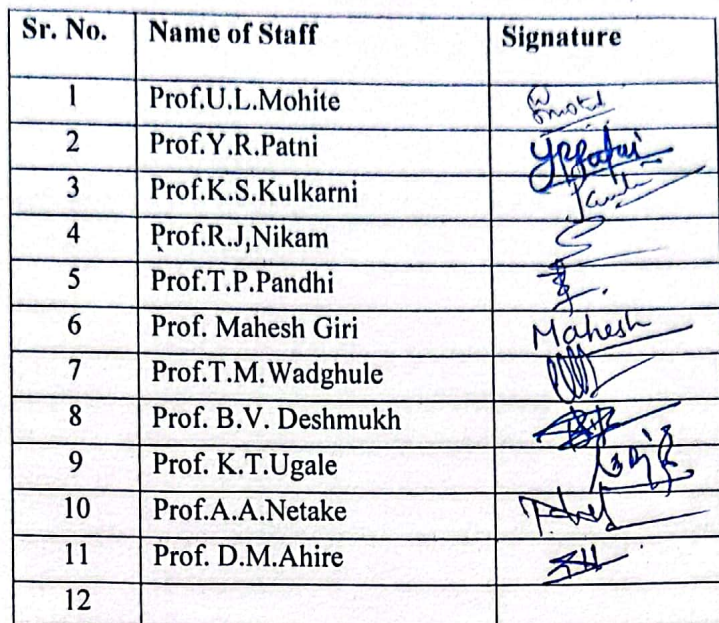 Sr. No. Name of Staff Signature
1 Prof.U.L.Mohite
2 Prof.Y.R.Patni
3 Prof.K.S.Kulkarni
4 Prof.R.J,Nikam
5 Prof.T.P.Pandhi
6 Prof. Mahesh Giri Mahesh
7 Prof.T.M.Wadghule
8 Prof. B.V. Deshmukh
9 Prof. K.T.Ugale
10 Prof.A.A.Netake
11 Prof. D.M.Ahire
12